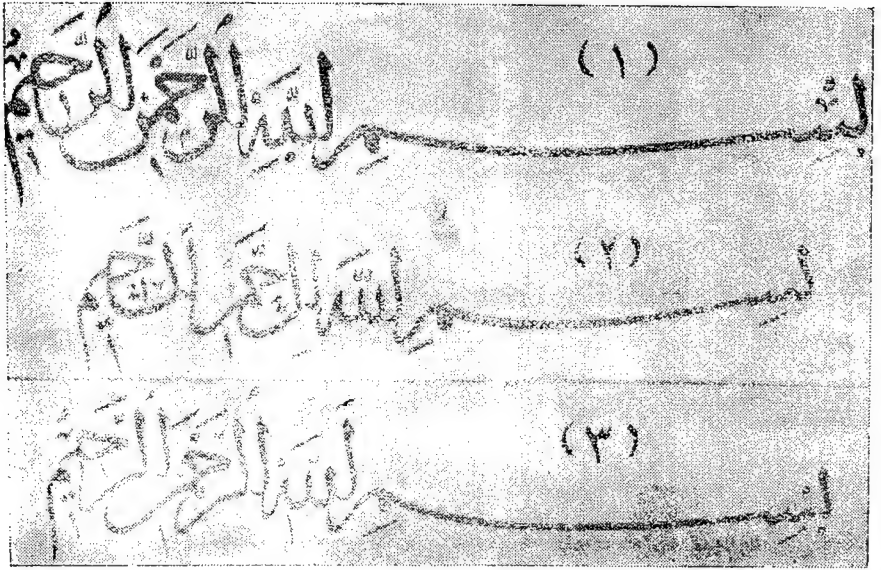 (١)
بسم الله الرحمن الرحيم
(٢)
بسم الله الرحمن الرحيم
(٣)
بسم الله الرحمن الرحيم